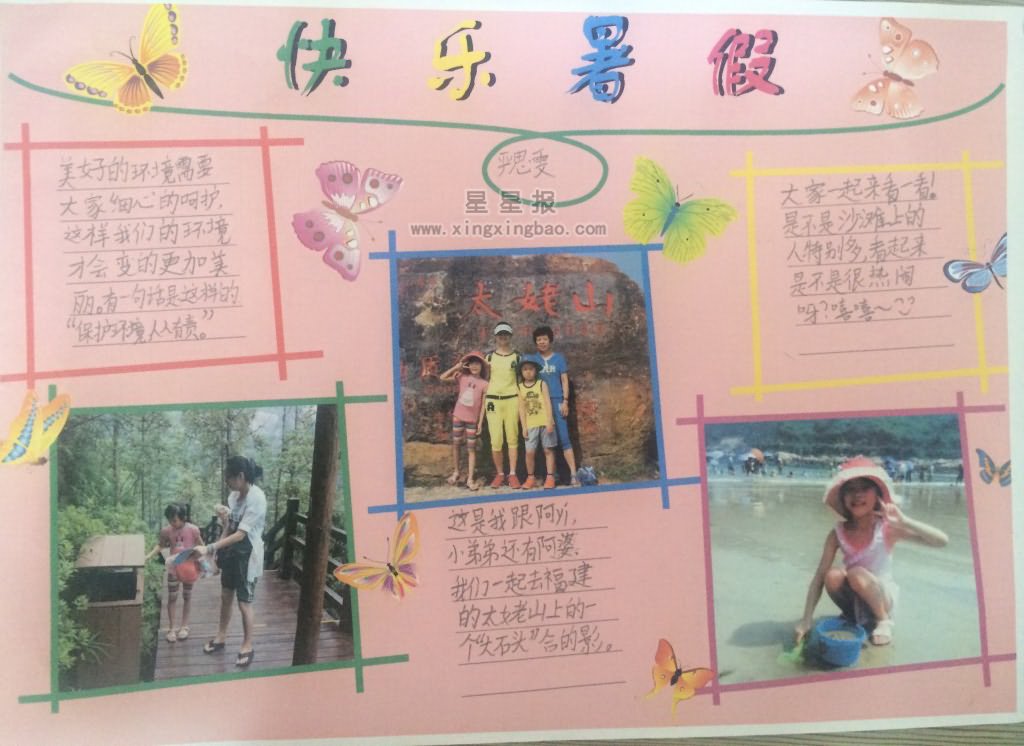 快乐暑假
辛思雯
星星报
www.xingxingbao.com
美好的环境需要
大家“细心”的呵护,
这样我们的环境
才会变的更加美
丽。有一句话是这样的
“保护环境人人有责”。
大家一起来看一看!
是不是沙滩上的
人特别多,看起来
是不是很热闹
呀?嘻嘻~
太姥山
这是我跟阿yi,
小弟弟还有阿婆、
我们一起去福建
的太姥山上的一
个“大石头”合的影。